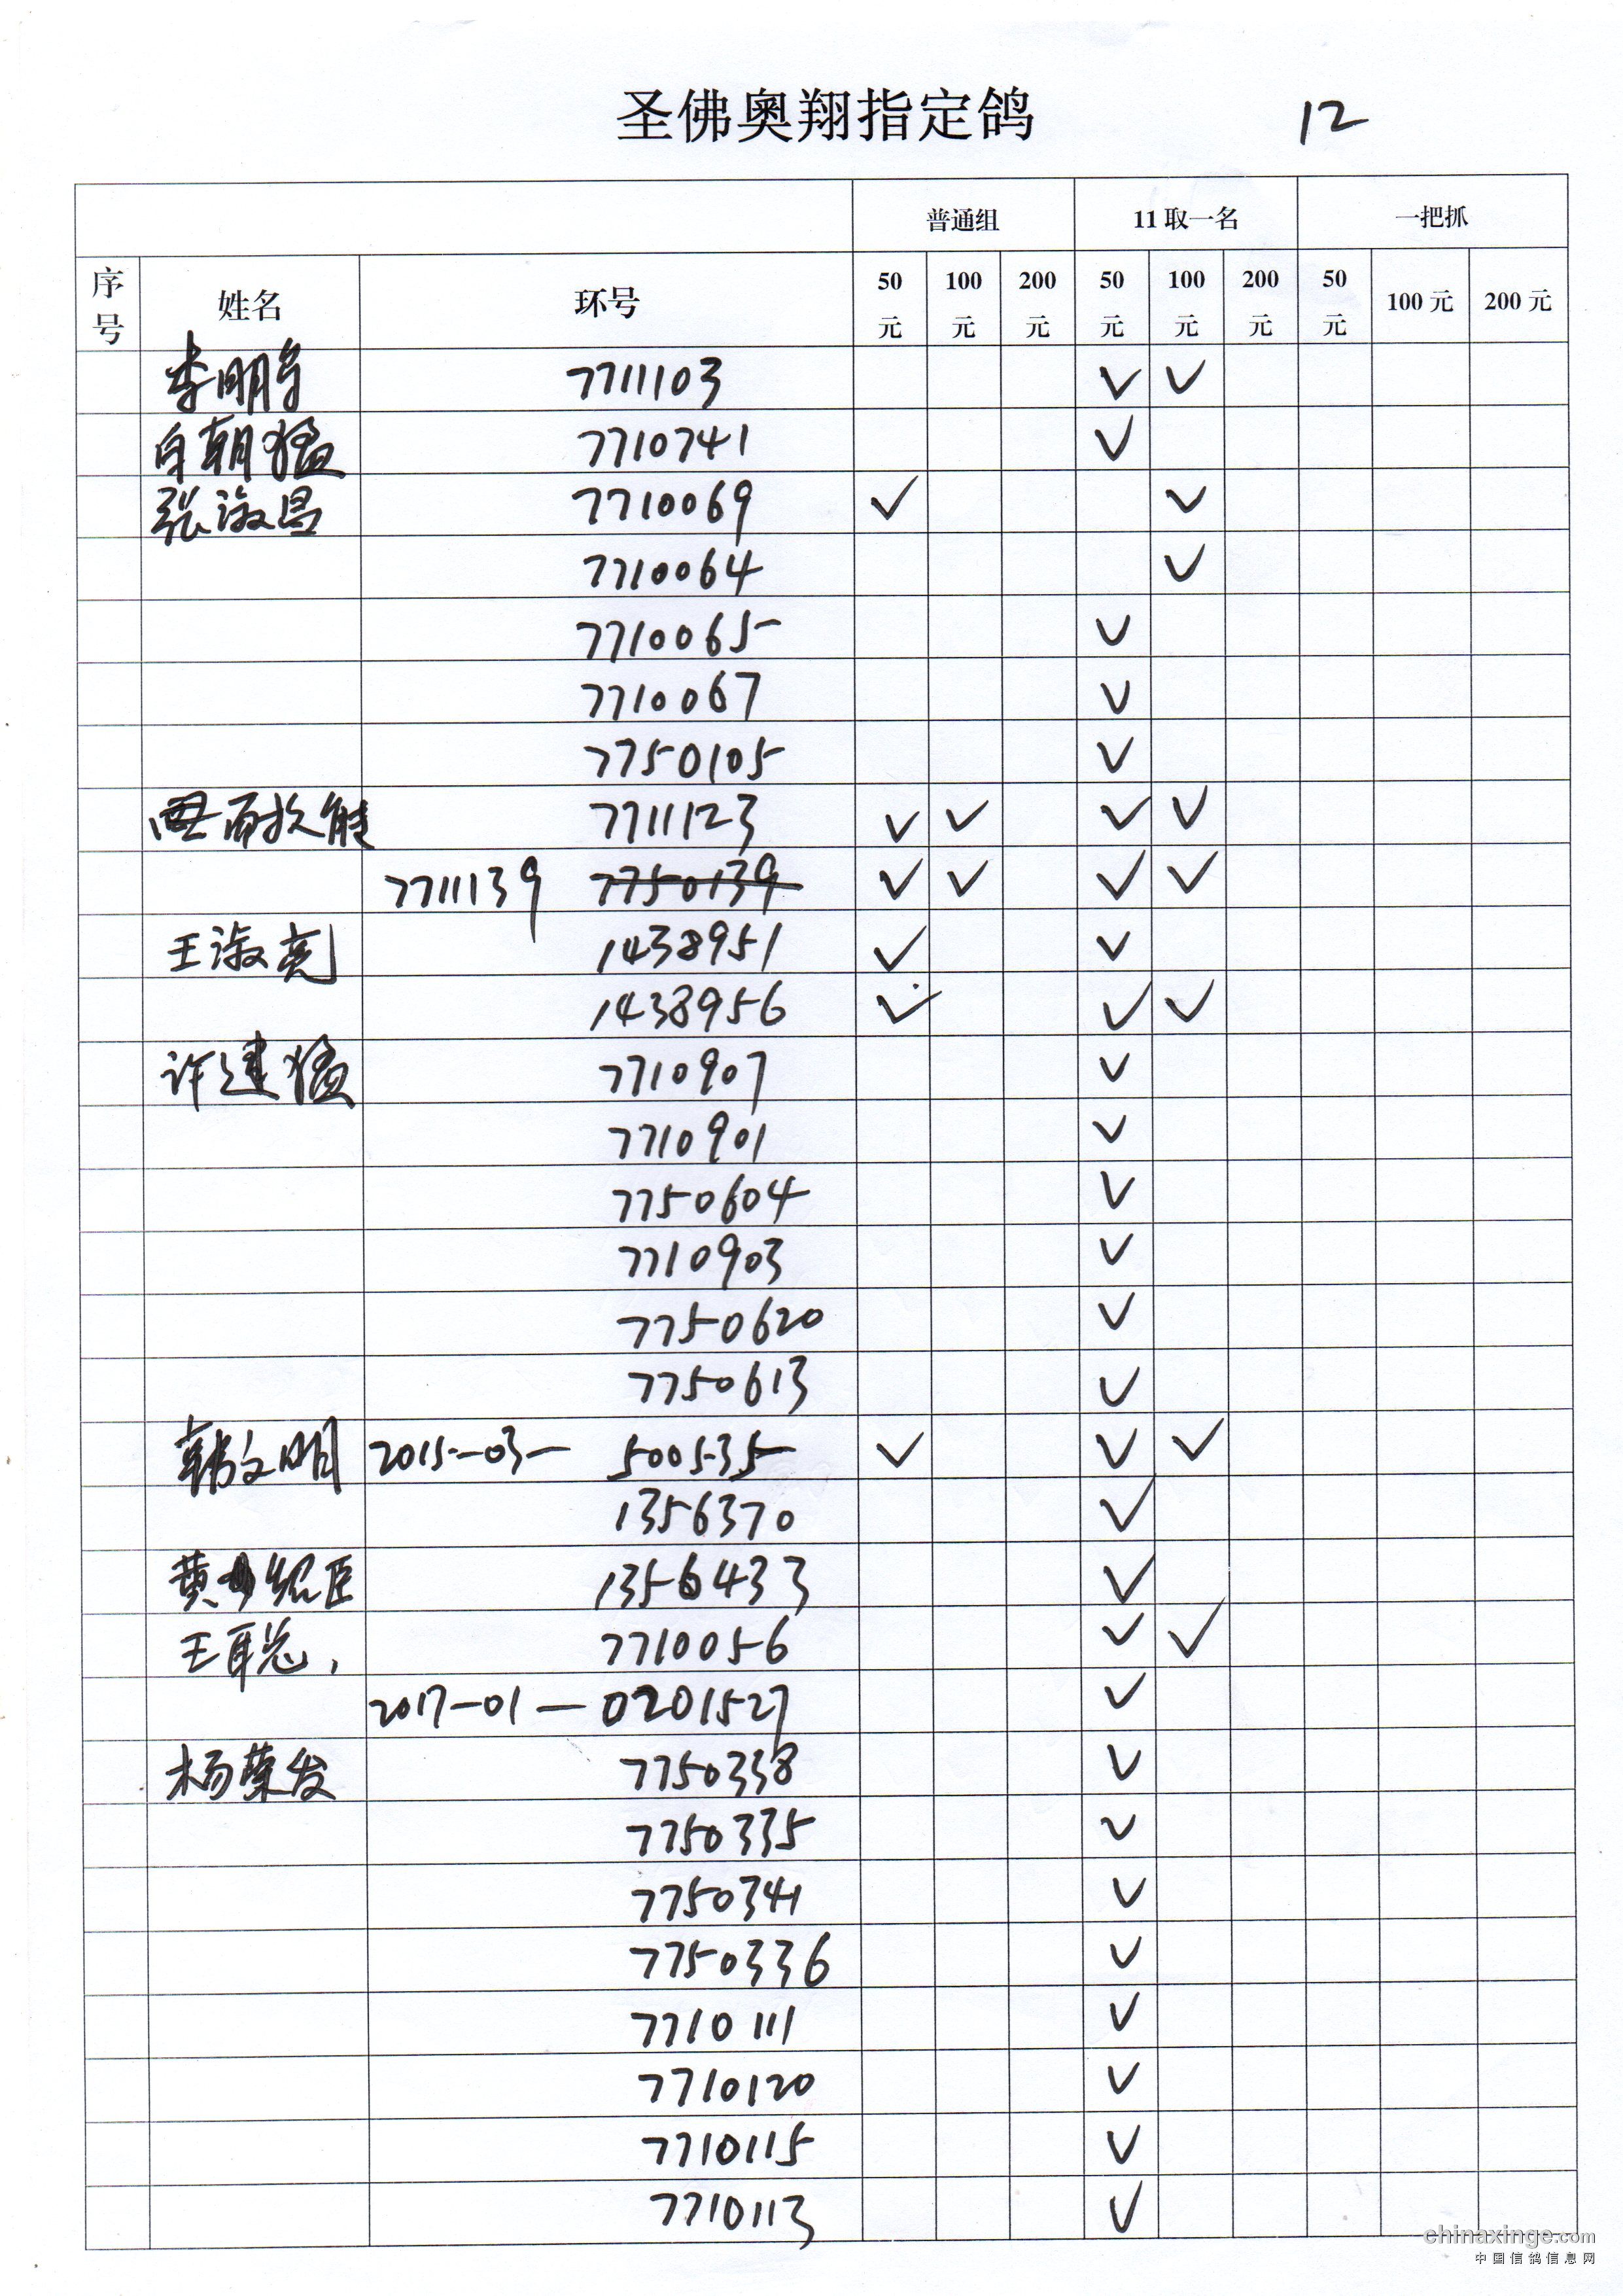 圣佛奥翔指定鸽 12
普通组 11取一名 一把抓
序号 姓名 环号 50元 100元 200元 50元 100元 200元 50元 100元 200元
李朋 7711103 ✓ ✓
白朝猛 7710741 ✓
张淑昌 7710069 ✓ ✓
7710064 ✓
7710065 ✓
7710067 ✓
7750105 ✓
7711123 ✓ ✓ ✓ ✓
7711139 7750139 ✓ ✓ ✓ ✓
王淑亮 1438951 ✓ ✓
1438956 ✓ ✓ ✓
许建猛 7710907 ✓
7710901 ✓
7750604 ✓
7710903 ✓
7750620 ✓
7750613 ✓
韩文明 2015-03- 500535 ✓ ✓ ✓
1356370 ✓
黄绍臣 1356433 ✓
王 7710056 ✓ ✓
2017-01-0201527 ✓
杨荣发 7750338 ✓
7750335 ✓
7750341 ✓
7750336 ✓
7710111 ✓
7710120 ✓
7710115 ✓
7710113 ✓
chinaxinge.com
中国信鸽信息网